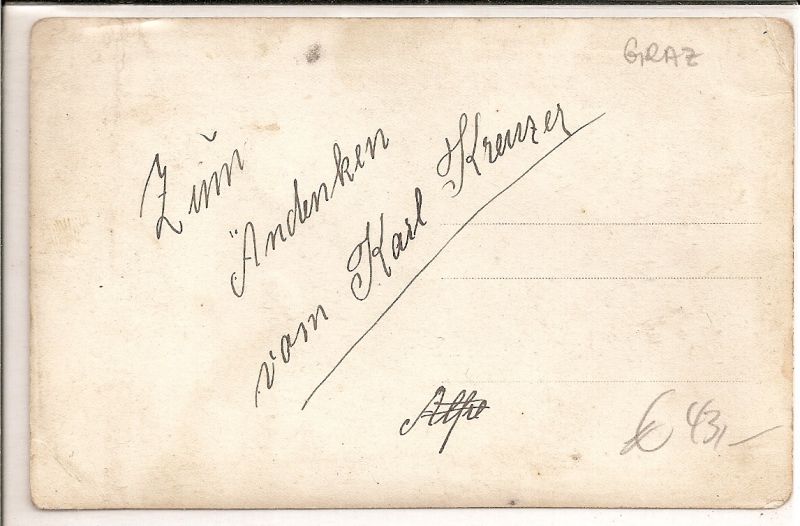 GRAZ
Zum
Andenken
vom Karl Kreuzer
43,-